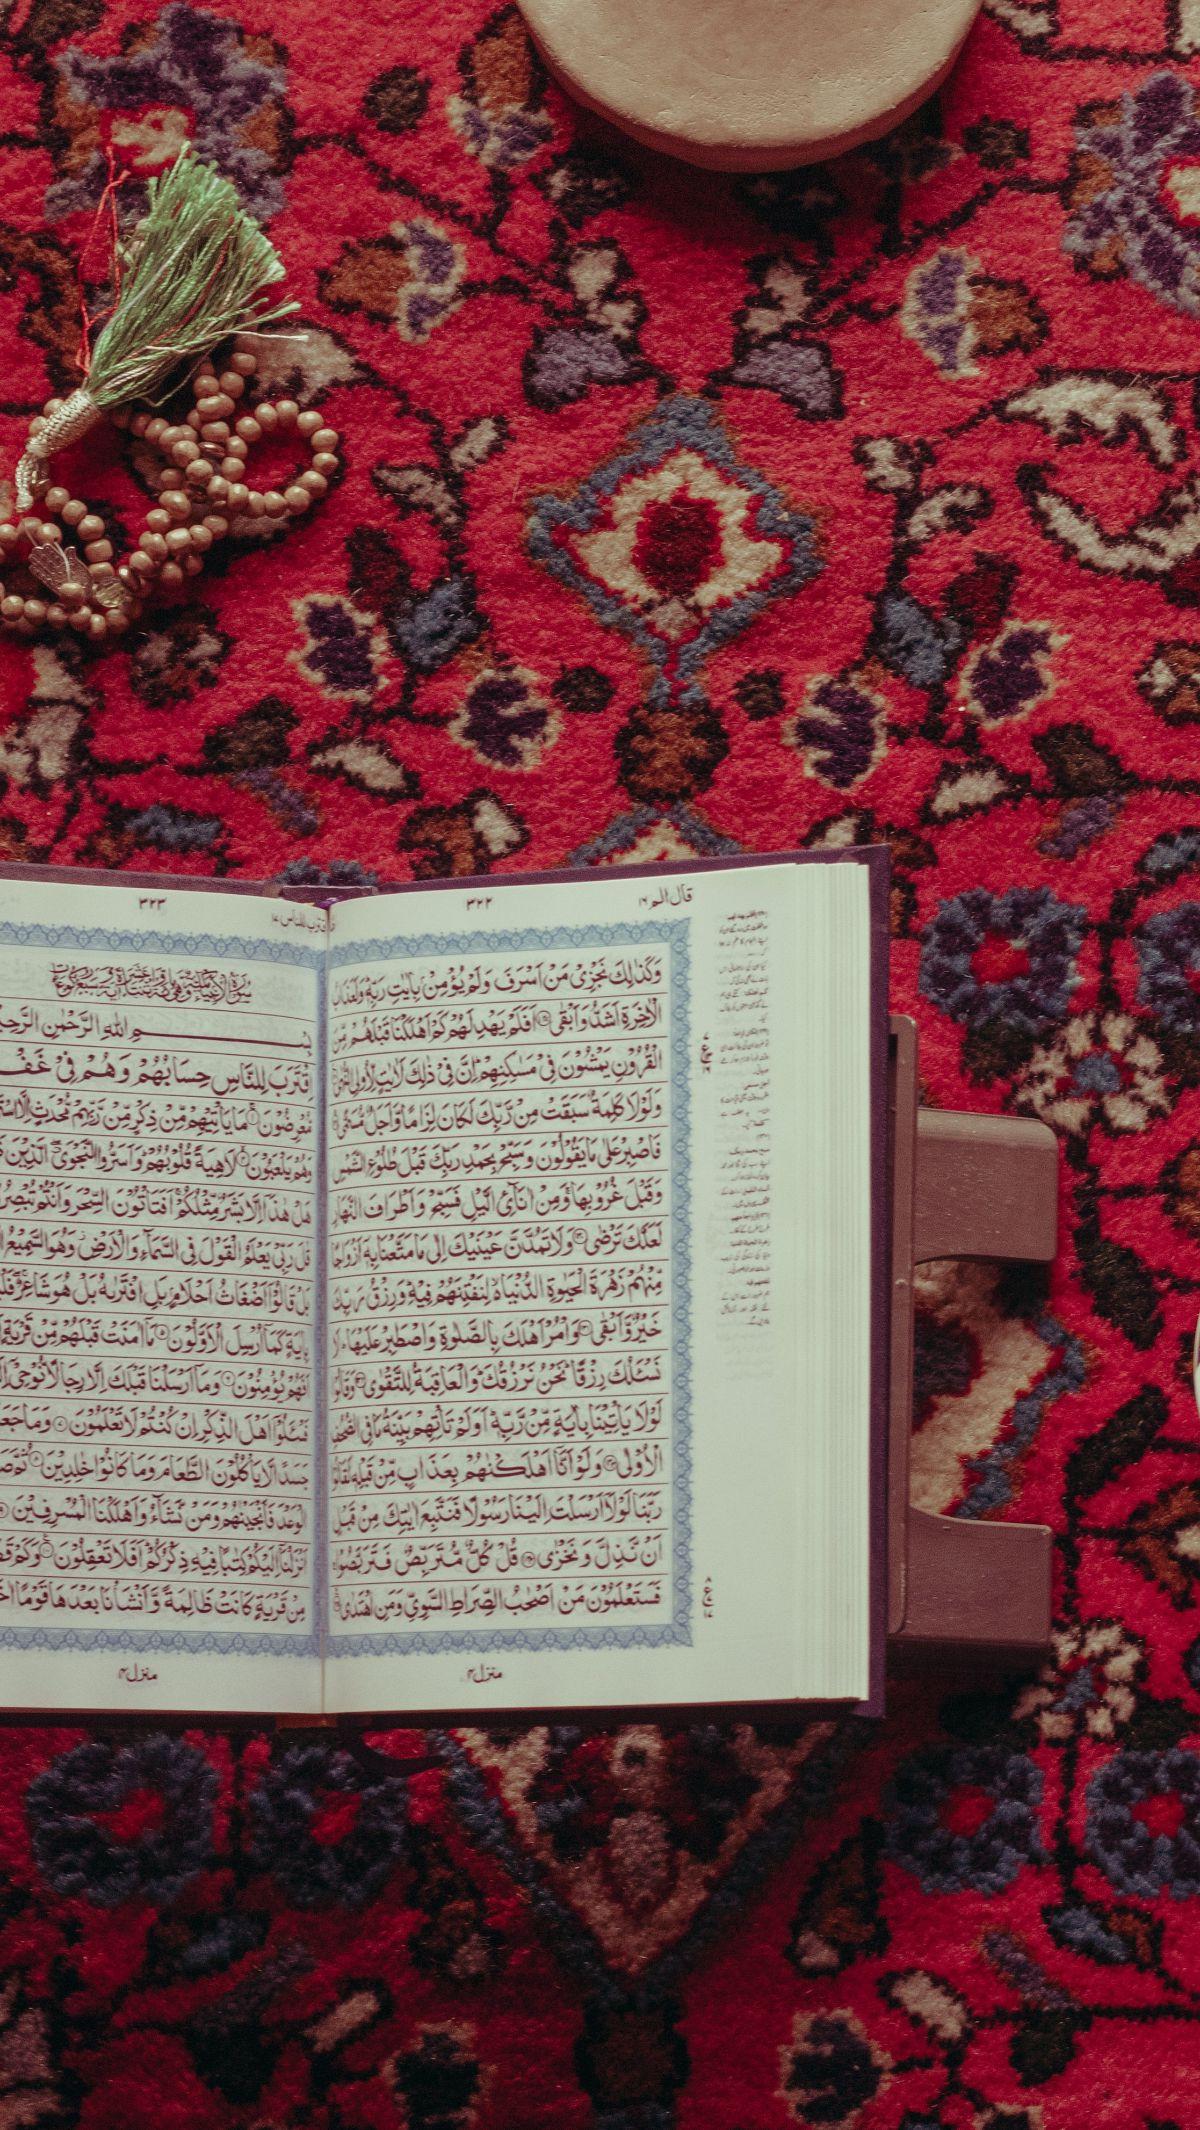 قال الم ١٦
٣٢٢
وَكَذٰلِكَ نَجْزِیْ مَنْ اَسْرَفَ وَلَمْ یُؤْمِنْۢ بِاٰیٰتِ رَبِّهٖ وَلَعَذَابُ
الْاٰخِرَةِ اَشَدُّ وَاَبْقٰی ۝ اَفَلَمْ یَهْدِ لَهُمْ كَمْ اَهْلَكْنَا قَبْلَهُمْ مِّنَ
الْقُرُوْنِ یَمْشُوْنَ فِیْ مَسٰكِنِهِمْ اِنَّ فِیْ ذٰلِكَ لَاٰیٰتٍ لِّاُولِی النُّهٰی
وَلَوْلَا كَلِمَةٌ سَبَقَتْ مِنْ رَّبِّكَ لَكَانَ لِزَامًا وَّاَجَلٌ مُّسَمًّی
فَاصْبِرْ عَلٰی مَا یَقُوْلُوْنَ وَسَبِّحْ بِحَمْدِ رَبِّكَ قَبْلَ طُلُوْعِ الشَّمْسِ
وَقَبْلَ غُرُوْبِهَا وَمِنْ اٰنَآئِ الَّیْلِ فَسَبِّحْ وَاَطْرَافَ النَّهَارِ
لَعَلَّكَ تَرْضٰی ۝ وَلَا تَمُدَّنَّ عَیْنَیْكَ اِلٰی مَا مَتَّعْنَا بِهٖۤ اَزْوَاجًا
مِّنْهُمْ زَهْرَةَ الْحَیٰوةِ الدُّنْیَا لِنَفْتِنَهُمْ فِیْهِ وَرِزْقُ رَبِّكَ
خَیْرٌ وَّاَبْقٰی ۝ وَاْمُرْ اَهْلَكَ بِالصَّلٰوةِ وَاصْطَبِرْ عَلَیْهَا لَا
نَسْـَٔلُكَ رِزْقًا نَحْنُ نَرْزُقُكَ وَالْعَاقِبَةُ لِلتَّقْوٰی ۝ وَقَالُوْا
لَوْلَا یَاْتِیْنَا بِاٰیَةٍ مِّنْ رَّبِّهٖ اَوَلَمْ تَاْتِهِمْ بَیِّنَةُ مَا فِی الصُّحُفِ
الْاُوْلٰی ۝ وَلَوْ اَنَّاۤ اَهْلَكْنٰهُمْ بِعَذَابٍ مِّنْ قَبْلِهٖ لَقَالُوْا
رَبَّنَا لَوْلَاۤ اَرْسَلْتَ اِلَیْنَا رَسُوْلًا فَنَتَّبِعَ اٰیٰتِكَ مِنْ قَبْلِ
اَنْ نَّذِلَّ وَنَخْزٰی ۝ قُلْ كُلٌّ مُّتَرَبِّصٌ فَتَرَبَّصُوْا
فَسَتَعْلَمُوْنَ مَنْ اَصْحٰبُ الصِّرَاطِ السَّوِیِّ وَمَنِ اهْتَدٰی ۝
منزل ٤
اقترب للناس ١٧
٣٢٣
بِسْمِ اللّٰهِ الرَّحْمٰنِ الرَّحِیْمِ
اِقْتَرَبَ لِلنَّاسِ حِسَابُهُمْ وَهُمْ فِیْ غَفْ
مُّعْرِضُوْنَ ۝ مَا یَاْتِیْهِمْ مِّنْ ذِكْرٍ مِّنْ رَّبِّهِمْ مُّحْدَثٍ اِلَّا اسْتَ
وَهُمْ یَلْعَبُوْنَ ۝ لَاهِیَةً قُلُوْبُهُمْ وَاَسَرُّوا النَّجْوَی الَّذِیْنَ
هَلْ هٰذَاۤ اِلَّا بَشَرٌ مِّثْلُكُمْ اَفَتَاْتُوْنَ السِّحْرَ وَاَنْتُمْ تُبْصِرُ
قٰلَ رَبِّیْ یَعْلَمُ الْقَوْلَ فِی السَّمَآءِ وَالْاَرْضِ وَهُوَ السَّمِیْعُ
بَلْ قَالُوْۤا اَضْغَاثُ اَحْلَامٍ بَلِ افْتَرٰىهُ بَلْ هُوَ شَاعِرٌ فَلْ
بِاٰیَةٍ كَمَاۤ اُرْسِلَ الْاَوَّلُوْنَ ۝ مَاۤ اٰمَنَتْ قَبْلَهُمْ مِّنْ قَرْیَةٍ
اَفَهُمْ یُؤْمِنُوْنَ ۝ وَمَاۤ اَرْسَلْنَا قَبْلَكَ اِلَّا رِجَالًا نُّوْحِیْۤ
فَسْـَٔلُوْۤا اَهْلَ الذِّكْرِ اِنْ كُنْتُمْ لَا تَعْلَمُوْنَ ۝ وَمَا جَعَ
جَسَدًا لَّا یَاْكُلُوْنَ الطَّعَامَ وَمَا كَانُوْا خٰلِدِیْنَ ۝ ثُمَّ صَ
الْوَعْدَ فَاَنْجَیْنٰهُمْ وَمَنْ نَّشَآءُ وَاَهْلَكْنَا الْمُسْرِفِیْنَ ۝
اَنْزَلْنَاۤ اِلَیْكُمْ كِتٰبًا فِیْهِ ذِكْرُكُمْ اَفَلَا تَعْقِلُوْنَ ۝ وَكَمْ قَ
مِنْ قَرْیَةٍ كَانَتْ ظَالِمَةً وَّاَنْشَاْنَا بَعْدَهَا قَوْمًا
منزل ٤